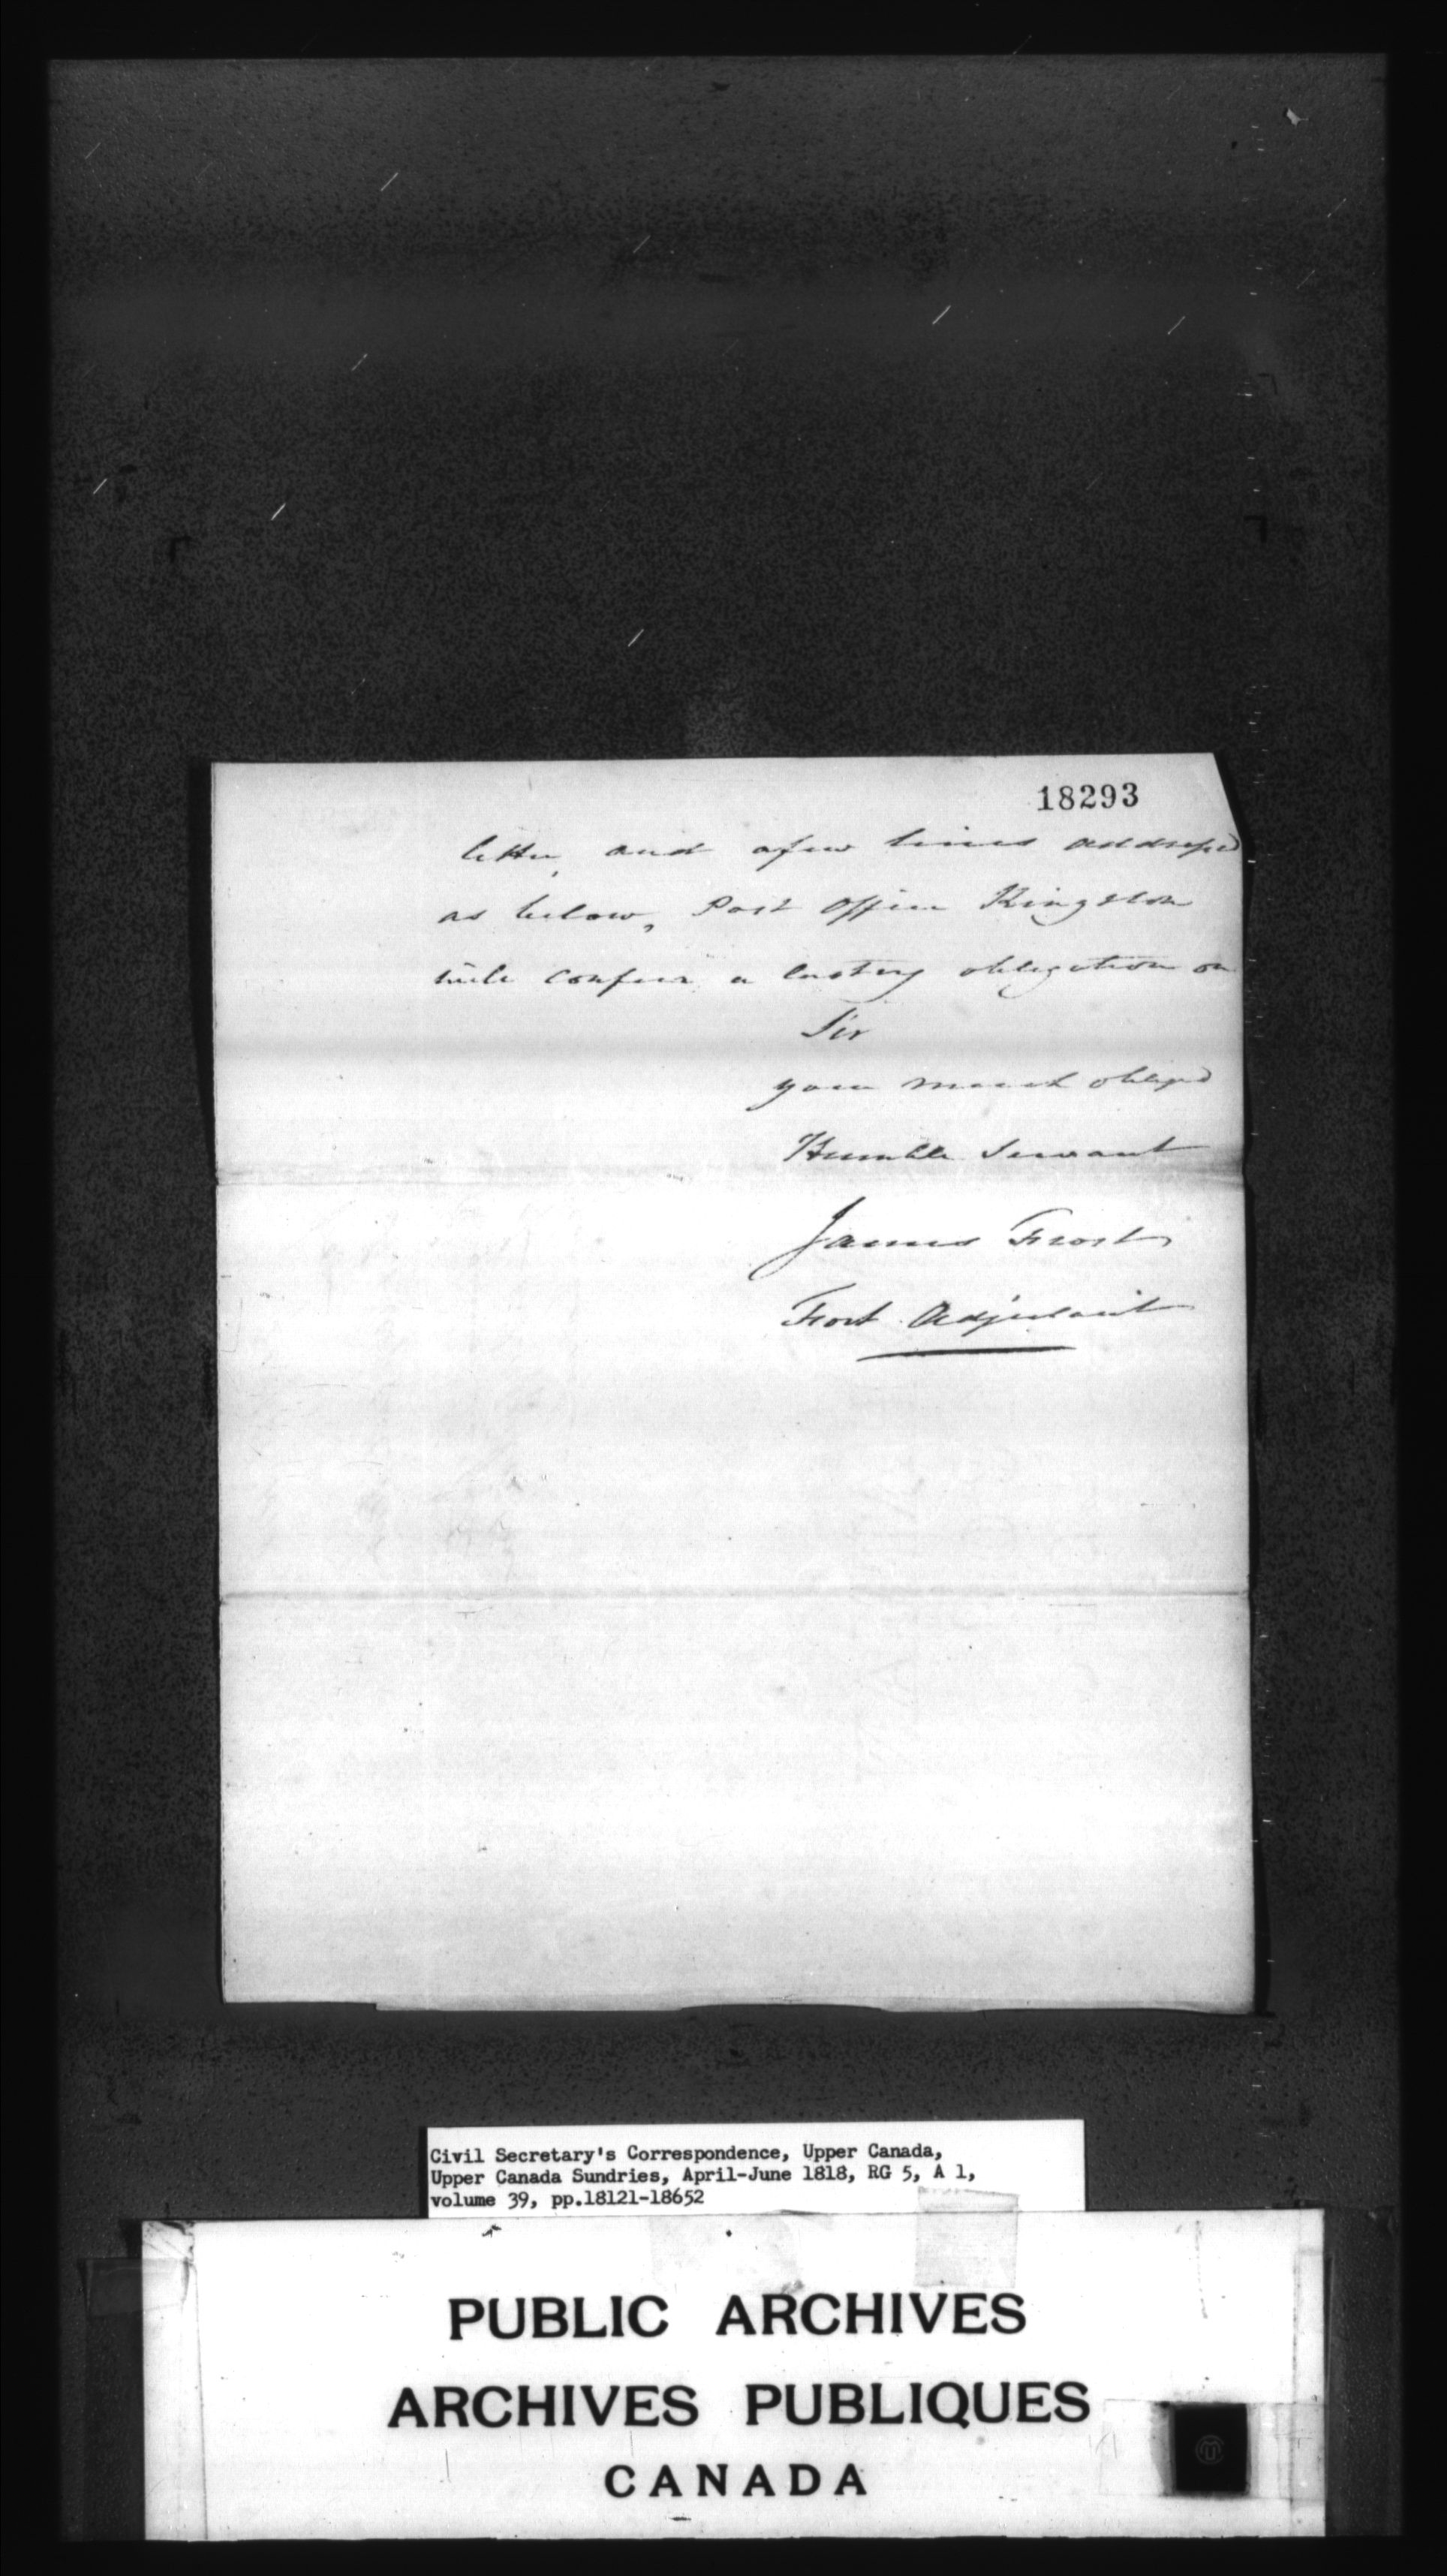 18293
letter, and afew lines addressed
as below, Post Office Kingston
will confer a lasting obligation on
Sir
your most obliged
Humble Servant
James Frost
Fort Adjutant
Civil Secretary's Correspondence, Upper Canada,
Upper Canada Sundries, April-June 1818, RG 5, A 1,
volume 39, pp.18121-18652
PUBLIC ARCHIVES
ARCHIVES PUBLIQUES
CANADA